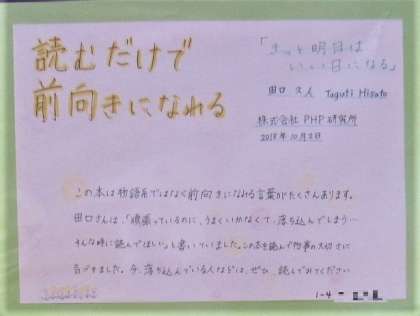 読むだけで
前向きになれる
「きっと明日は
いい日になる」
田口 久人 Taguti Hisato
株式会社 PHP 研究所
2018年10月2日
この本は物語系ではなく前向きになれる言葉がたくさんあります。
田口さんは、「頑張っているのに、うまくいかなくて、落ち込んでしまう…
そんな時に読んでほしい」と書いていました。この本を読んで物事の大切さに
気づきました。今、落ち込んでいる人などは、ぜひ、読んでみてください
1-4